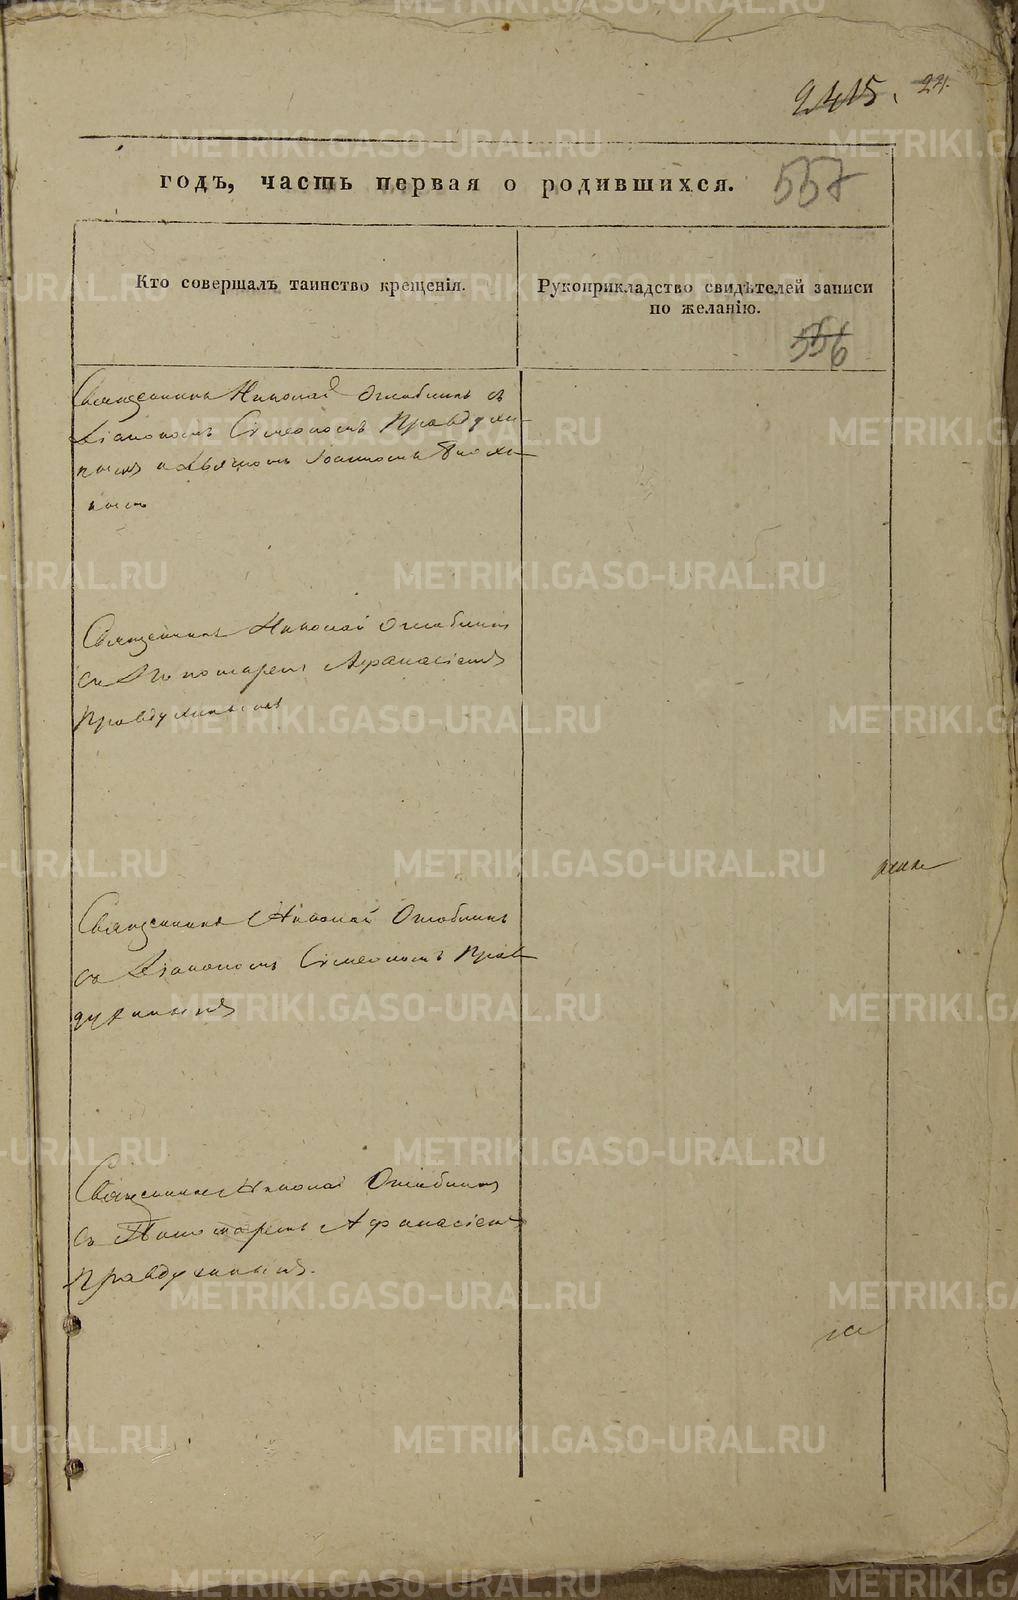 2415. 24.
годъ, часть первая о родившихся. 557
Кто совершалъ таинство крещенія.
Рукоприкладство свидѣтелей записи
по желанію.
556
Священникъ Николай Оглоблинъ съ
Діакономъ Сѵмеономъ Правдухи-
нымъ и Дьячкомъ Іоанномъ
нымъ
Священникъ Николай Оглоблинъ
съ Пономаремъ Афанасіемъ
Правдухинымъ
Священникъ Николай Оглоблинъ
съ Діакономъ Сѵмеономъ Прав
духинымъ
Священникъ Николай Оглоблинъ
съ Пономаремъ Афанасіемъ
Правдухинымъ.
METRIKI.GASO-URAL.RU